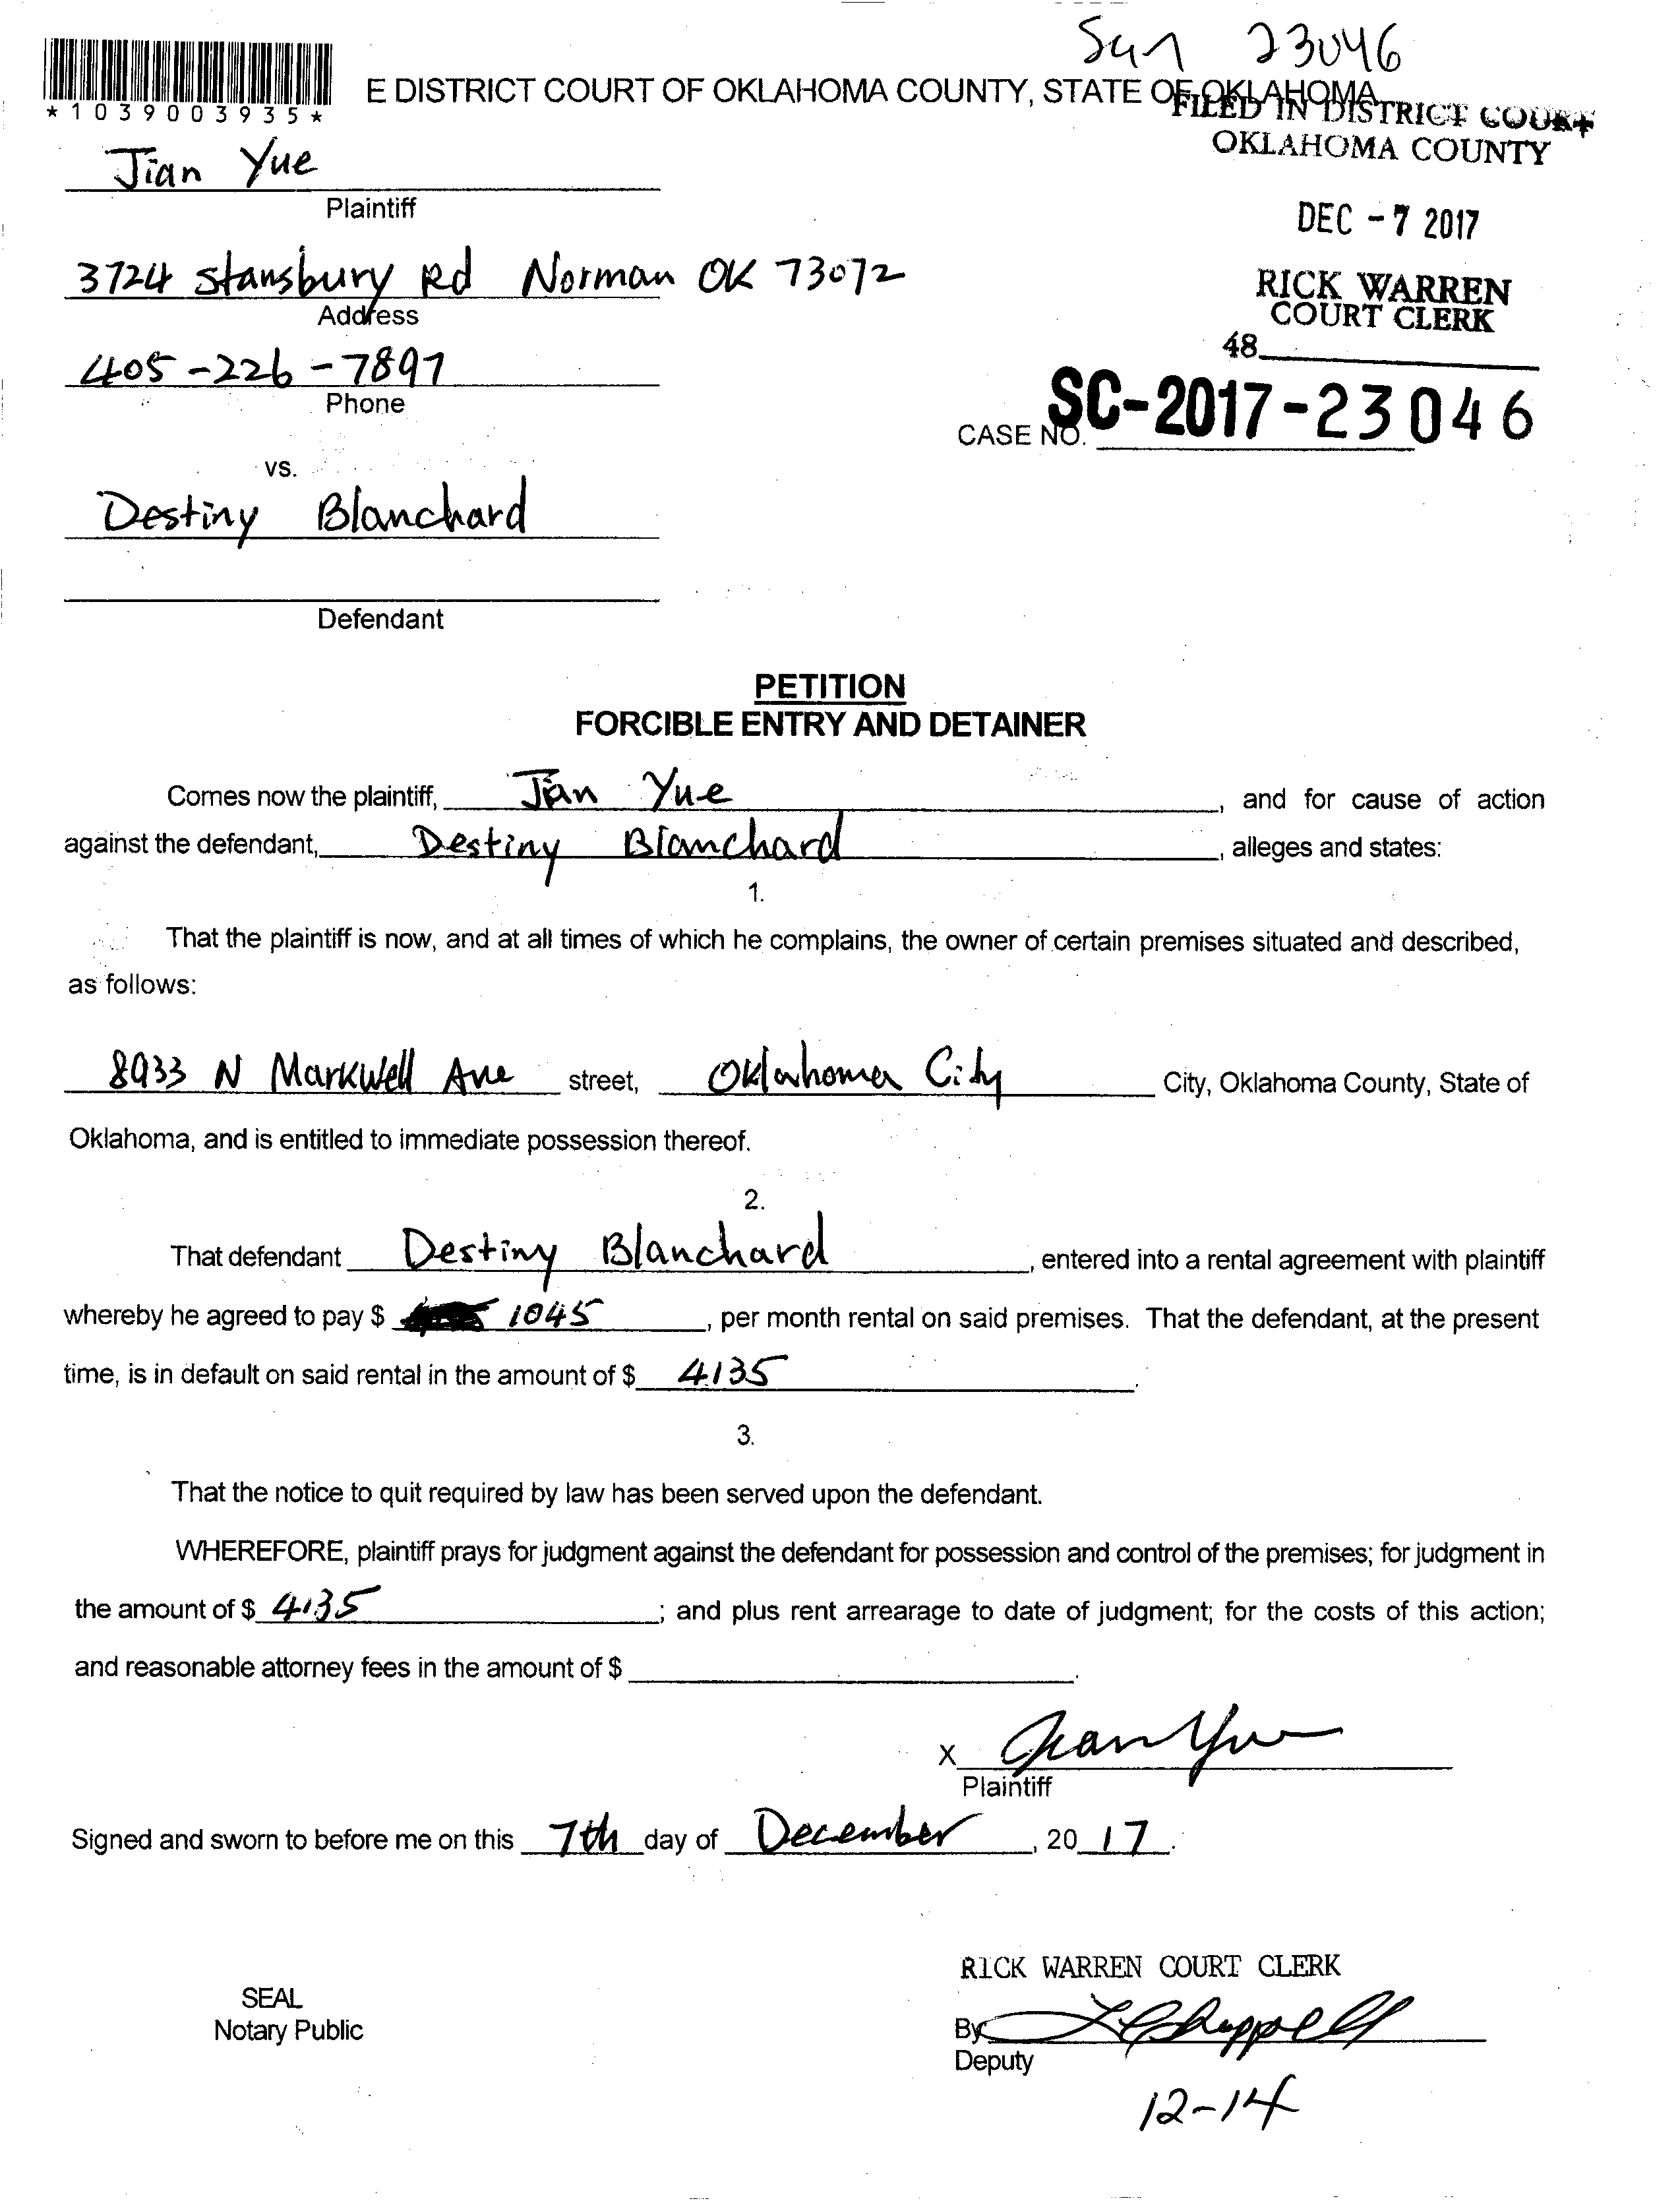 Sun 23046
*1039003935*
E DISTRICT COURT OF OKLAHOMA COUNTY, STATE OF OKLAHOMA
FILED IN DISTRICT COURT
OKLAHOMA COUNTY
Jian Yue
Plaintiff
DEC - 7 2017
3724 Stansbury Rd Norman OK 73072
Address
RICK WARREN
COURT CLERK
48
405-226-7897
Phone
CASE NO. SC-2017-23046
vs.
Destiny Blanchard
Defendant
PETITION
FORCIBLE ENTRY AND DETAINER
Comes now the plaintiff, Jian Yue, and for cause of action
against the defendant, Destiny Blanchard, alleges and states:
1.
That the plaintiff is now, and at all times of which he complains, the owner of certain premises situated and described,
as follows:
8933 N Markwell Ave street, Oklahoma City City, Oklahoma County, State of
Oklahoma, and is entitled to immediate possession thereof.
2.
That defendant Destiny Blanchard, entered into a rental agreement with plaintiff
whereby he agreed to pay $ 1045, per month rental on said premises. That the defendant, at the present
time, is in default on said rental in the amount of $ 4135.
3.
That the notice to quit required by law has been served upon the defendant.
WHEREFORE, plaintiff prays for judgment against the defendant for possession and control of the premises; for judgment in
the amount of $ 4135; and plus rent arrearage to date of judgment; for the costs of this action;
and reasonable attorney fees in the amount of $ .
X Jian Yue
Plaintiff
Signed and sworn to before me on this 7th day of December, 20 17.
RICK WARREN COURT CLERK
SEAL
Notary Public
By
Deputy
12-14